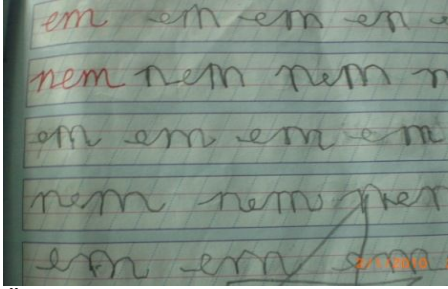 em em em en
nem nem nem
em em em em
nem nem
em em em